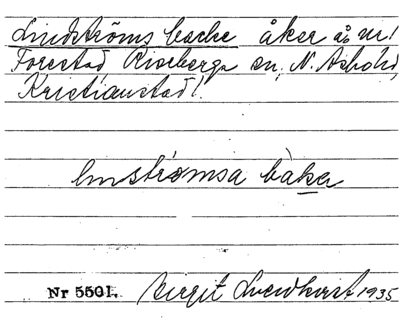 Lindströms backe åker å nr 1
Forestad Riseberga sn, N. Åsbo hd,
Kristianstad l.
linströmsa bàka
Nr 5501. Birgit Lundkvist 1935